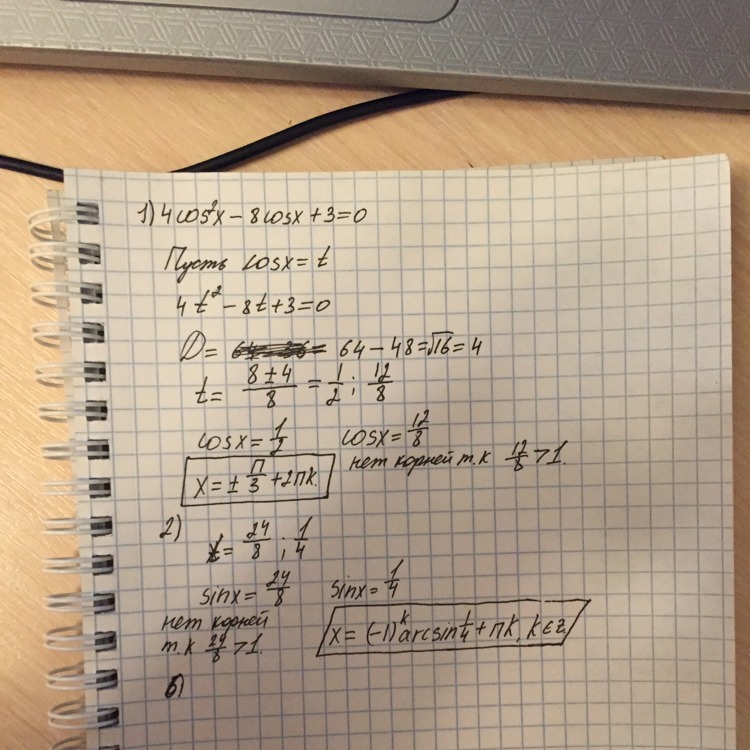 1) 4cos²x − 8cosx + 3 = 0
Пусть cosx = t
4t² − 8t + 3 = 0
D = 64 − 48 = √16 = 4
t = (8 ± 4)/8 = 1/2 ; 12/8
cosx = 1/2 cosx = 12/8
x = ± π/3 + 2πk. нет корней т.к 12/8 > 1.
2) t = 24/8 ; 1/4
sinx = 24/8 sinx = 1/4
нет корней
т.к 24/8 > 1. x = (−1)ᵏ arcsin 1/4 + πk, k ∈ z
б)